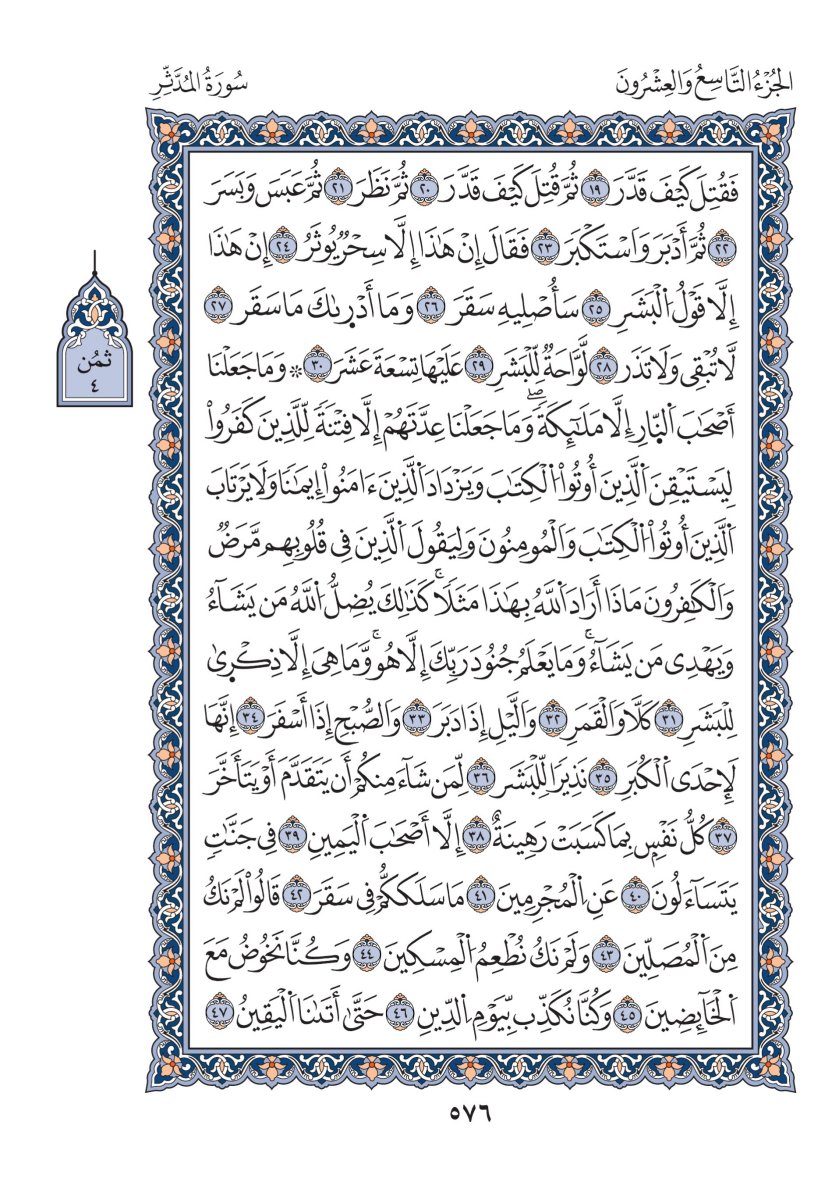 الجُزْءُ التَّاسِعُ وَالعِشْرُونَ
سُورَةُ المُدَّثِّرِ
فَقُتِلَ كَيۡفَ قَدَّرَ ١٩ ثُمَّ قُتِلَ كَيۡفَ قَدَّرَ ٢٠ ثُمَّ نَظَرَ ٢١ ثُمَّ عَبَسَ وَبَسَرَ
٢٢ ثُمَّ أَدۡبَرَ وَٱسۡتَكۡبَرَ ٢٣ فَقَالَ إِنۡ هَٰذَا إِلَّا سِحۡرٌ يُوثَرُ ٢٤ إِنۡ هَٰذَا
إِلَّا قَوۡلُ ٱلۡبَشَرِ ٢٥ سَأُصۡلِيهِ سَقَرَ ٢٦ وَمَا أَدۡرىٰكَ مَا سَقَر ٢٧
لَّا تُبۡقِي وَلَا تَذَر ٢٨ لَّوَّاحَةٌ لِّلۡبَشَرِ ٢٩ عَلَيۡهَا تِسۡعَةَ عَشَرَ ٣٠ ۞ وَمَا جَعَلۡنَا
أَصۡحَٰبَ ٱلنّ۪ارِ إِلَّا مَلَٰٓئِكَةٗۖ وَمَا جَعَلۡنَا عِدَّتَهُمۡ إِلَّا فِتۡنَةٗ لِّلَّذِينَ كَفَرُواْ
لِيَسۡتَيۡقِنَ ٱلَّذِينَ أُوتُواْ ٱلۡكِتَٰبَ وَيَزۡدَادَ ٱلَّذِينَ ءَامَنُواْ إِيمَٰنٗا وَلَا يَرۡتَابَ
ٱلَّذِينَ أُوتُواْ ٱلۡكِتَٰبَ وَٱلۡمُومِنُونَ وَلِيَقُولَ ٱلَّذِينَ فِي قُلُوبِهِم مَّرَضٞ
وَٱلۡكَٰفِرُونَ مَاذَا أَرَادَ ٱللَّهُ بِهَٰذَا مَثَلٗاۚ كَذَٰلِكَ يُضِلُّ ٱللَّهُ مَن يَشَآءُ
وَيَهۡدِي مَن يَشَآءُۚ وَمَا يَعۡلَمُ جُنُودَ رَبِّكَ إِلَّا هُوۚ وَّمَا هِيَ إِلَّا ذِكۡرىٰ
لِلۡبَشَرِ ٣١ كَلَّا وَٱلۡقَمَرِ ٣٢ وَٱلَّيۡلِ إِذَا دَبَرَ ٣٣ وَٱلصُّبۡحِ إِذَا أَسۡفَرَ ٣٤ إِنَّهَا
لَإِحۡدَى ٱلۡكُبَرِ ٣٥ نَذِيرٗا لِّلۡبَشَر ٣٦ لِّمَن شَآءَ مِنكُمۡ أَن يَتَقَدَّمَ أَوۡ يَتَأَخَّرَ
٣٧ كُلُّ نَفۡسِۭ بِمَا كَسَبَتۡ رَهِينَةٌ ٣٨ إِلَّا أَصۡحَٰبَ ٱلۡيَمِينِ ٣٩ فِي جَنَّٰتٖ
يَتَسَآءَلُونَ ٤٠ عَنِ ٱلۡمُجۡرِمِينَ ٤١ مَا سَلَككُّمۡ فِي سَقَرَ ٤٢ قَالُواْ لَمۡ نَكُ
مِنَ ٱلۡمُصَلِّينَ ٤٣ وَلَمۡ نَكُ نُطۡعِمُ ٱلۡمِسۡكِينَ ٤٤ وَكُنَّا نَخُوضُ مَعَ
ٱلۡخَآئِضِينَ ٤٥ وَكُنَّا نُكَذِّب بِّيَوۡمِ ٱلدِّينِ ٤٦ حَتَّىٰ أَتَىٰنَا ٱلۡيَقِينُ ٤٧
ثُمُن
٤
٥٧٦